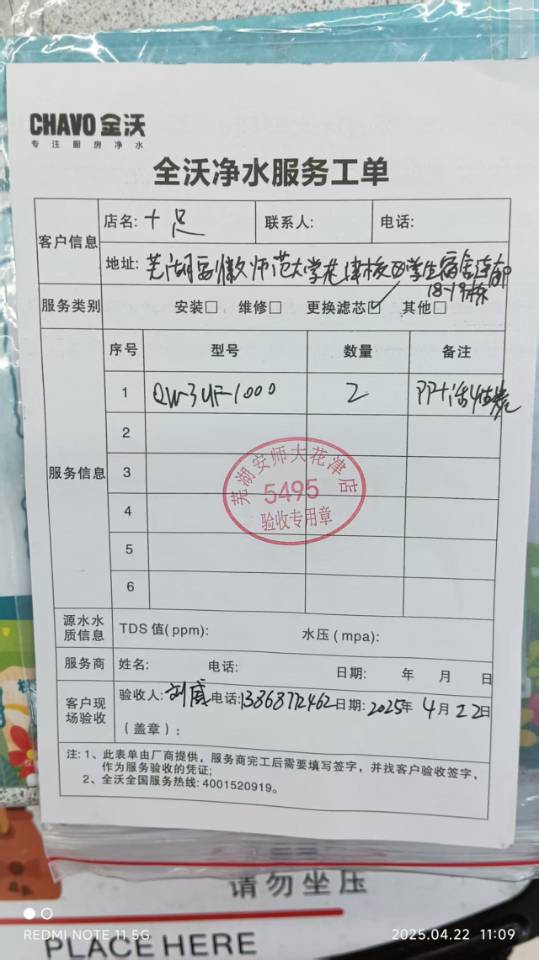 CHAVO 全沃
专注厨房净水
全沃净水服务工单
客户信息
店名: 十足 联系人: 电话:
地址: 芜湖安徽师范大学花津校区学生宿舍连廊
18-19栋
服务类别 安装□ 维修□ 更换滤芯☑ 其他□
服务信息
序号 型号 数量 备注
1 QW-3UF-1000 2 PP+活性炭
2
3
4
5
6
芜湖安师大花津店
5495
验收专用章
源水水质信息 TDS 值(ppm): 水压(mpa):
服务商 姓名: 电话: 日期: 年 月 日
客户现场验收
验收人: 刘威 电话: 13868772462 日期: 2025年 4月 22日
(盖章):
注: 1、此表单由厂商提供，服务商完工后需要填写签字，并找客户验收签字，
作为服务验收的凭证;
2、全沃全国服务热线: 4001520919。
请勿坐压
REDMI NOTE 11 5G
2025.04.22 11:09
PLACE HERE